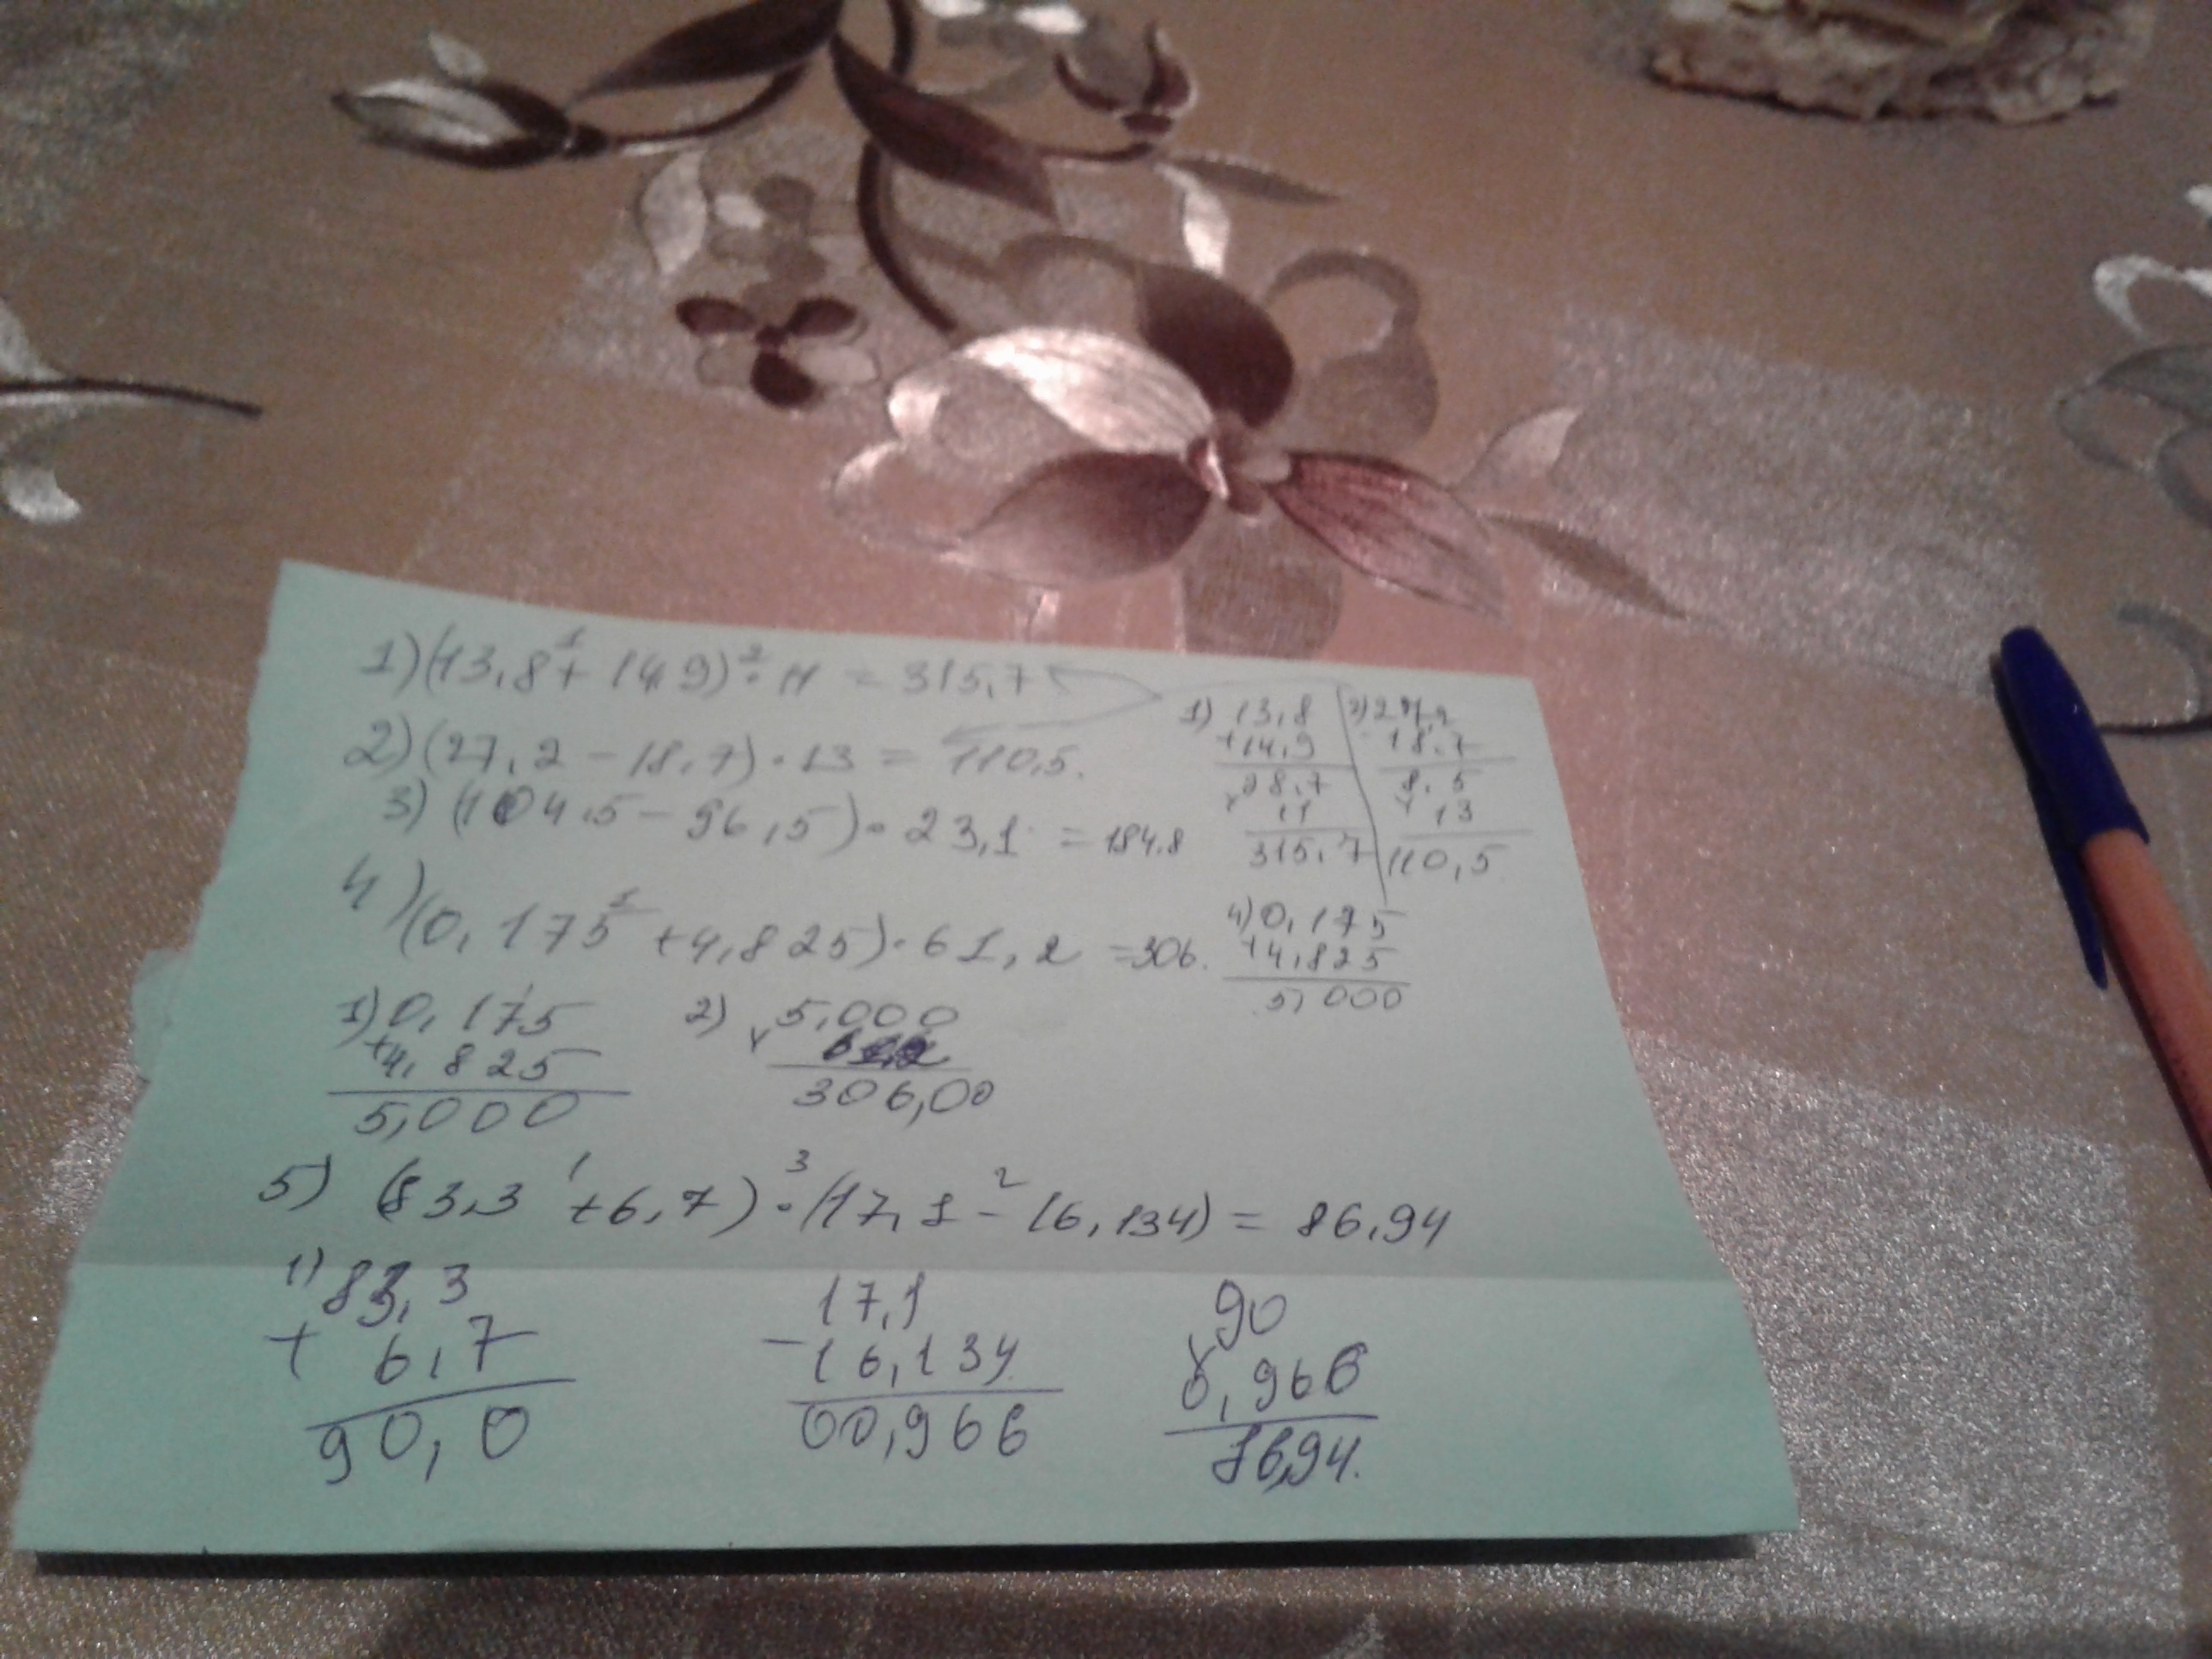 1) (13,8 + 14,9) · 11 = 315,7
2) (27,2 - 18,7) · 13 = 110,5.
3) (104,5 - 96,5) · 23,1 = 184.8
4) (0,175 + 4,825) · 61,2 = 306.
1) 13,8
+14,9
28,7
× 11
315,7
2) 27,2
- 18,7
8,5
× 13
110,5
4) 0,175
+4,825
5,000
1) 0,175
+4,825
5,000
2) 5,000
× 61,2
306,00
5) (83,3 + 6,7) · (17,1 - 16,134) = 86,94
1) 83,3
+ 6,7
90,0
17,1
- 16,134
00,966
90
× 0,966
86,94.